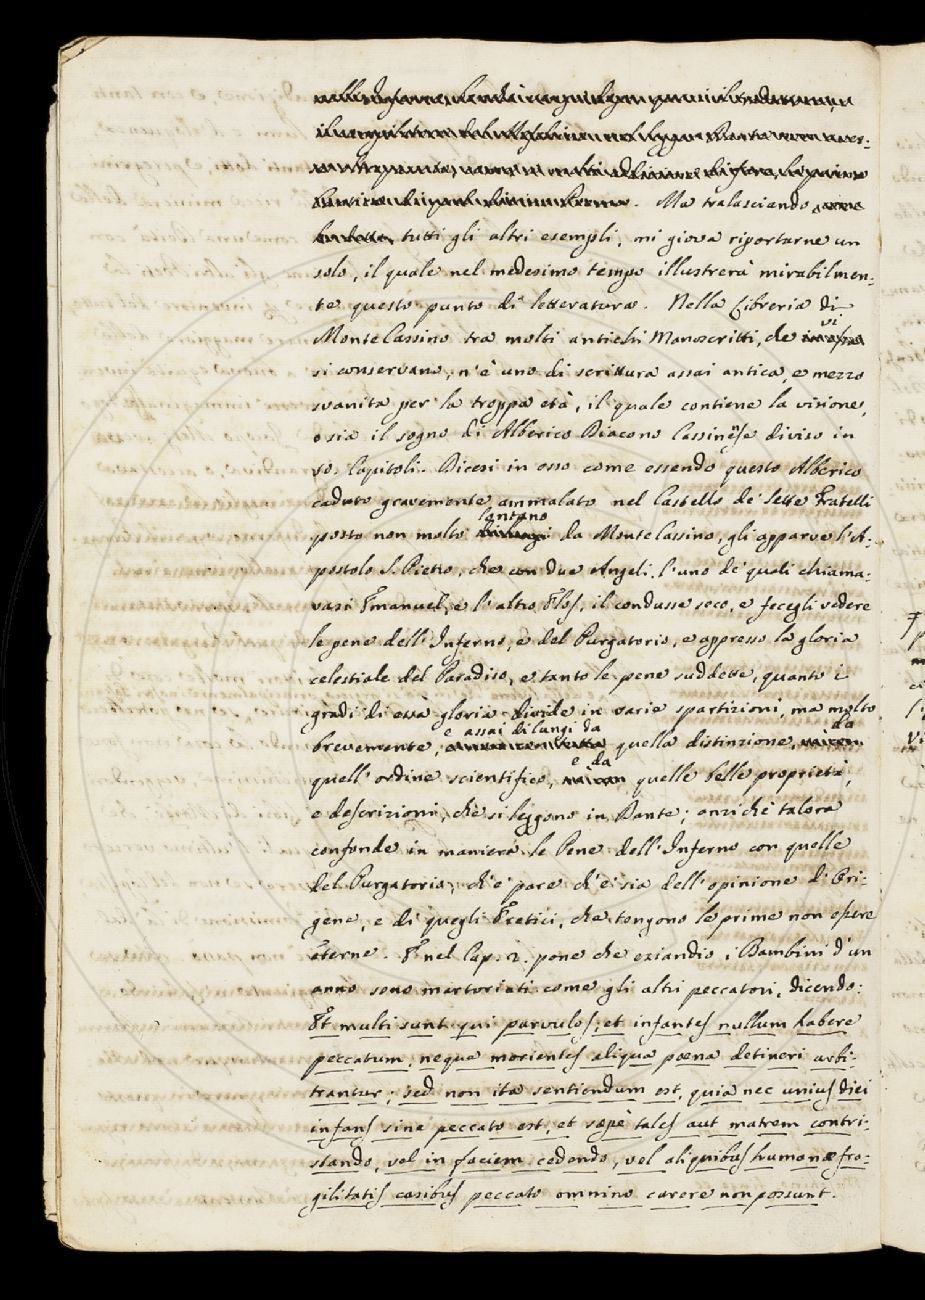 Ma tralasciando
tutti gli altri esempli, mi giova riportarne un
solo, il quale nel medesimo tempo illustrerà mirabilmen-
te questo punto di letteratura. Nella Libreria di
MonteCassino tra molti antichi Manoscritti, che vi
si conservano, n'è uno di scrittura assai antica, e mezzo
svanita per la troppa età, il quale contiene la visione,
o sia il sogno di Alberico Diacono Cassinese diviso in
50. Capitoli. Dicesi in esso come essendo questo Alberico
caduto gravemente ammalato nel Castello de' Sette Fratelli
lontano
posto non molto da MonteCassino, gli apparve l'A-
postolo S. Pietro, che con due Angeli, l'uno de' quali chiama-
vasi Emanuel, e l'altro Elos, il condusse seco, e fecegli vedere
le pene dell'Inferno, e del Purgatorio, e appresso la gloria
celestiale del Paradiso, e tanto le pene suddette, quanto i
gradi di essa gloria divide in varie spartizioni, ma molto
e assai dilungi da da
brevemente, quella distinzione,
e da
quell'ordine scientifico, quelle belle proprietà,
e descrizioni, che si leggono in Dante; anzichè talora
confonde in maniera le Pene dell'Inferno con quelle
del Purgatorio, ch'e' pare ch'e' sia dell'opinione d'Ori-
gene, e di quegli Eretici, che tengono le prime non essere
eterne. E nel Cap. 2. pone che eziandio i Bambini d'un
anno sono martoriati come gli altri peccatori, dicendo:
Et multi sunt qui parvulos, et infantes nullum habere
peccatum, neque morientes aliqua pœna detineri arbi-
trantur; sed non ita sentiendum est, quia nec unius diei
infans sine peccato est, et sæpè tales aut matrem contri-
stando, vel in faciem cedendo, vel aliquibus humanæ fra-
gilitatis casibus peccato omnino carere non possunt.